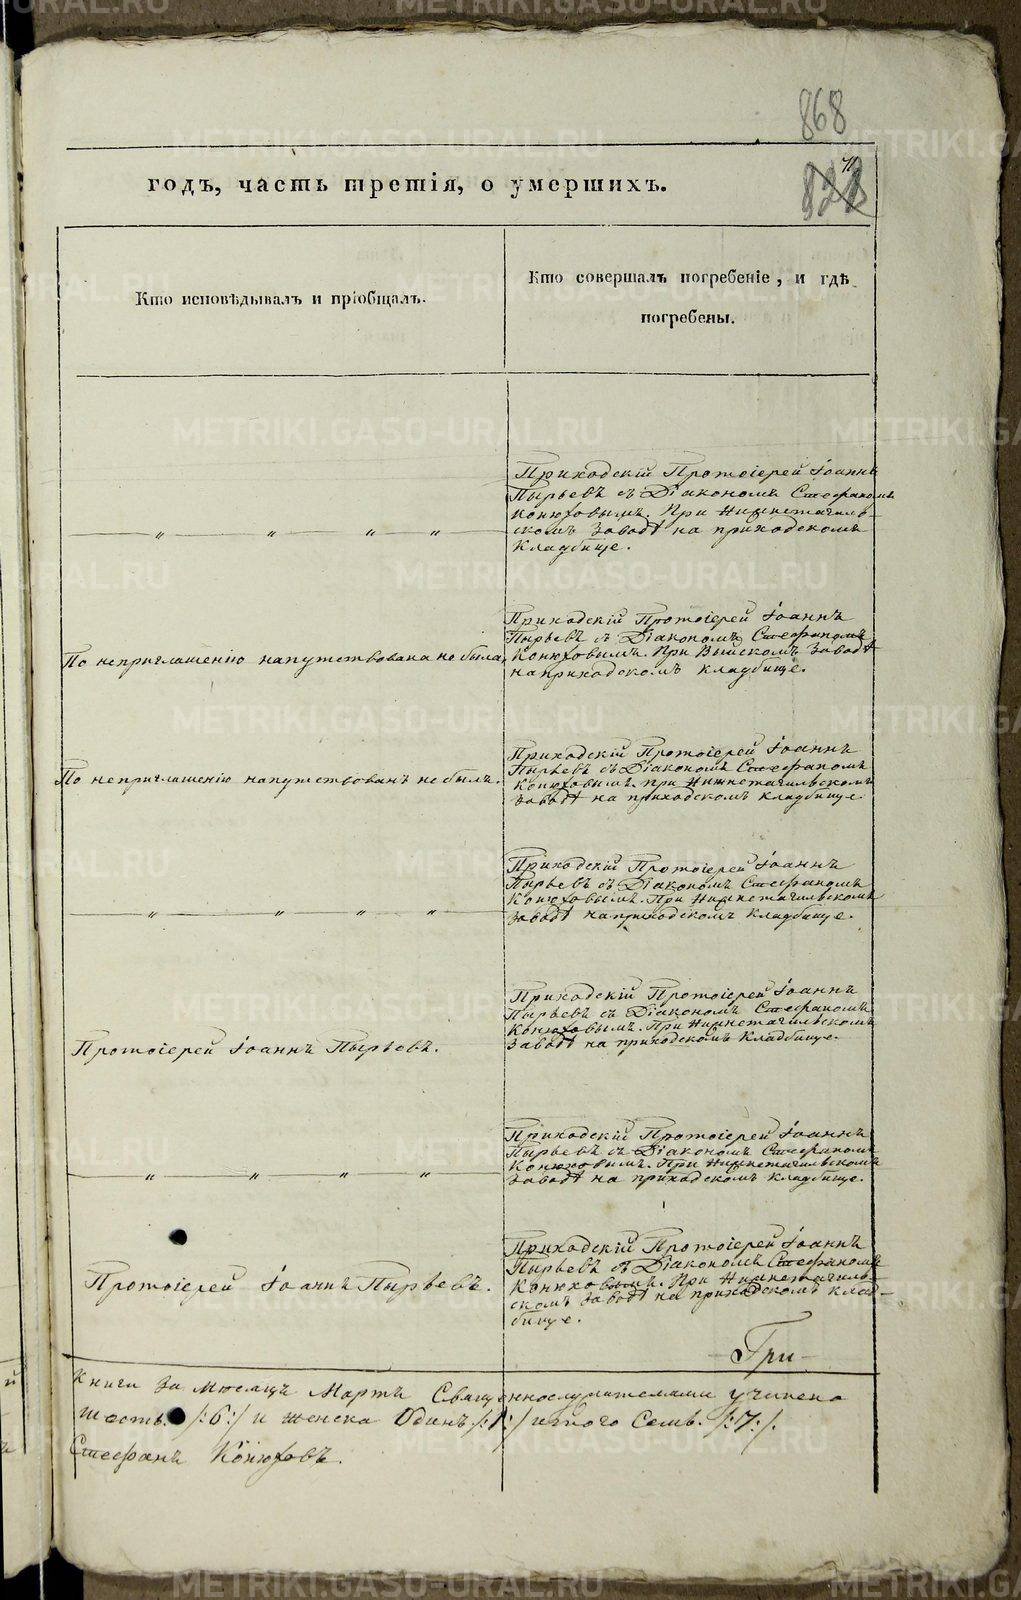 868
годъ, часть третія, о умершихъ.
Кто исповѣдывалъ и пріобщалъ.
Кто совершалъ погребеніе, и гдѣ
погребены.
Приходскій Протоіерей Іоаннъ
Пырьевъ съ Діакономъ Стефаномъ
Конюховымъ. При Нижнетагиль-
скомъ Заводѣ на приходскомъ
Кладбище.
— „ — „ — „ — „ —
Приходскій Протоіерей Іоаннъ
Пырьевъ съ Діакономъ Стефаномъ
Конюховымъ. При Выйскомъ Заводѣ
на приходскомъ кладбище.
По неприглашенію напутствована не была.
Приходскій Протоіерей Іоаннъ
Пырьевъ съ Діакономъ Стефаномъ
Конюховымъ. при Нижнетагильскомъ
Заводѣ на приходскомъ кладбище.
По неприглашенію напутствованъ не былъ.
Приходскій Протоіерей Іоаннъ
Пырьевъ съ Діакономъ Стефаномъ
Конюховымъ. При Нижнетагильскомъ
Заводѣ на приходскомъ кладбище.
— „ — „ — „ — „ —
Приходскій Протоіерей Іоаннъ
Пырьевъ съ Діакономъ Стефаномъ
Конюховымъ. При Нижнетагильскомъ
Заводѣ на приходскомъ Кладбище.
Протоіерей Іоаннъ Пырьевъ.
Приходскій Протоіерей Іоаннъ
Пырьевъ съ Діакономъ Стефаномъ
Конюховымъ. При Нижнетагильскомъ
Заводѣ на приходскомъ кладбище.
— „ — „ — „ — „ —
Приходскій Протоіерей Іоаннъ
Пырьевъ съ Діакономъ Стефаномъ
Конюховымъ. При Нижнетагиль-
скомъ Заводѣ на приходскомъ клад-
бище.
Протоіерей Іоаннъ Пырьевъ.
При
Книги За Мѣсяцъ Мартъ Священнослужителями учинено
шесть /:6:/ и женска Одинъ /:1:/ итого Семь. /:7:/.
Стефанъ Конюховъ.
METRIKI.GASO-URAL.RU